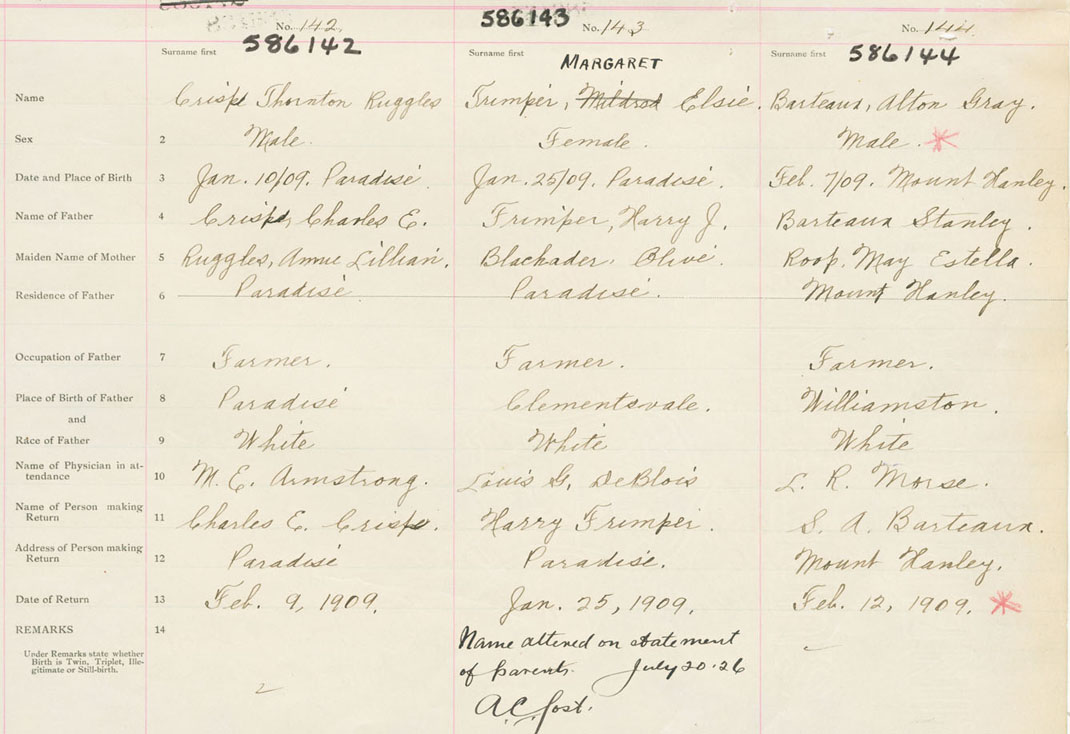 No. 142 No. 143 No. 144
586142 586143 586144
Surname first Surname first Surname first
MARGARET
Name Crisp Thornton Ruggles Trimper, Mildred Elsie. Barteaux, Alton Gray.
Sex 2 Male. Female. Male. *
Date and Place of Birth 3 Jan. 10/09. Paradise. Jan. 25/09. Paradise. Feb. 7/09. Mount Hanley.
Name of Father 4 Crisp, Charles E. Trimper, Harry J. Barteaux Stanley.
Maiden Name of Mother 5 Ruggles, Annie Lillian. Blackader. Olive. Roop. May Estella.
Residence of Father 6 Paradise Paradise. Mount Hanley.
Occupation of Father 7 Farmer. Farmer. Farmer.
Place of Birth of Father 8 Paradise Clementsvale. Williamston.
and
Race of Father 9 White White White
Name of Physician in at-
tendance 10 M. E. Armstrong. Louis G. DeBlois L. R. Morse.
Name of Person making
Return 11 Charles E. Crisp. Harry Trimper. S. A. Barteaux.
Address of Person making
Return 12 Paradise Paradise. Mount Hanley.
Date of Return 13 Feb. 9, 1909. Jan. 25, 1909. Feb. 12, 1909. *
REMARKS 14
Under Remarks state whether
Birth is Twin, Triplet, Ille-
gitimate or Still-birth.
Name altered on statement
of parents. July 20·26
A.C. Jost.